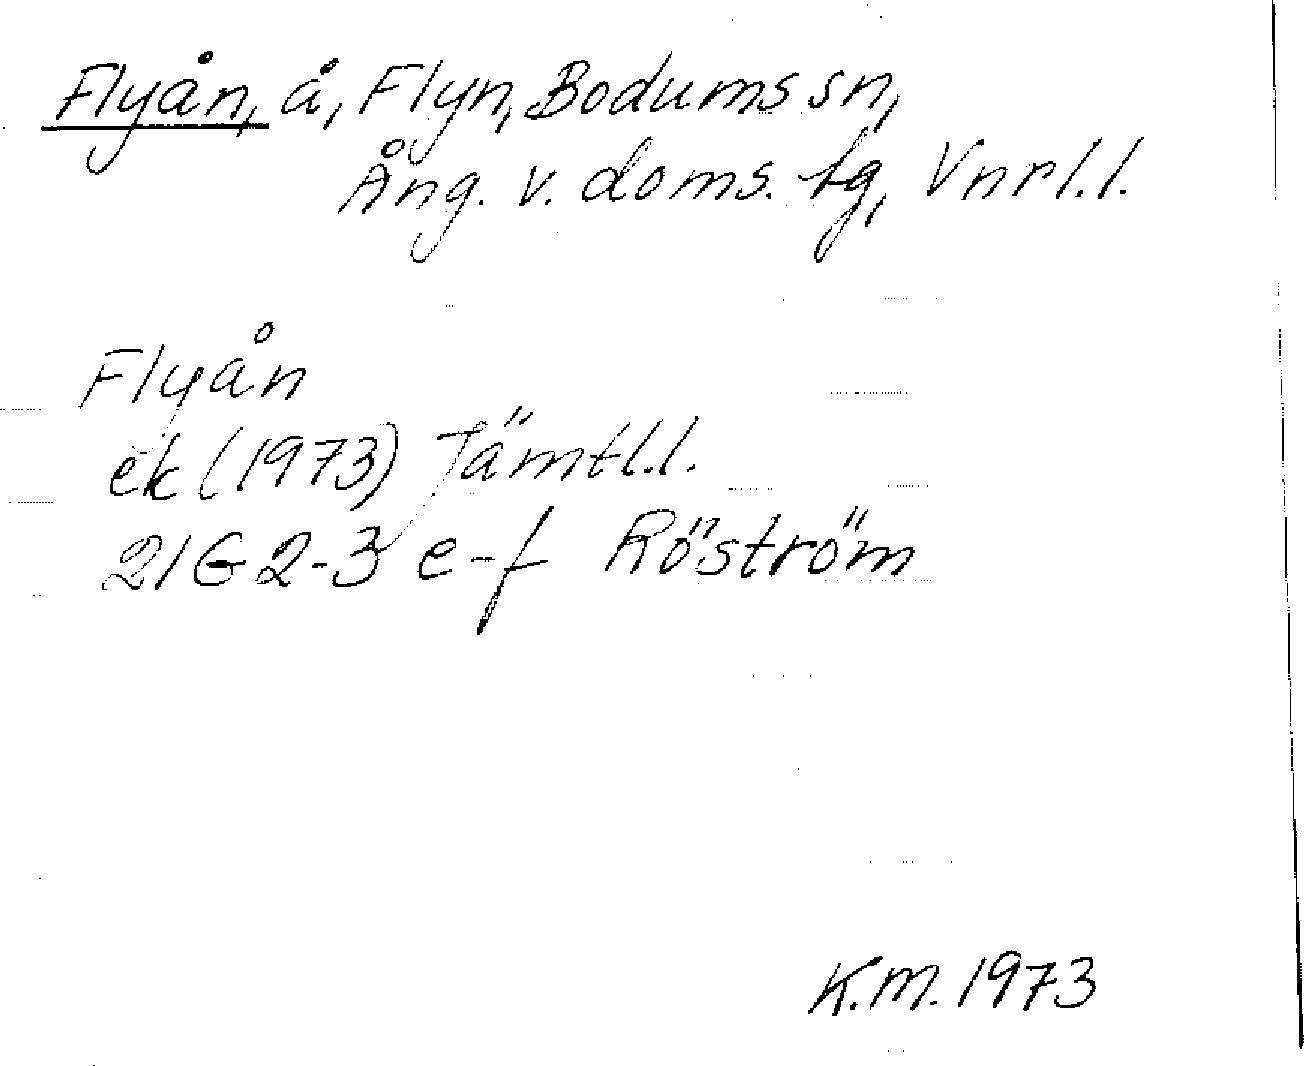 Flyån, å, Flyn, Bodums sn,
Ång. v. doms. tg, Vnrl.l.
Flyån
ek (1973) Jämtl.l.
21G 2-3 e-f Röström
K.M. 1973